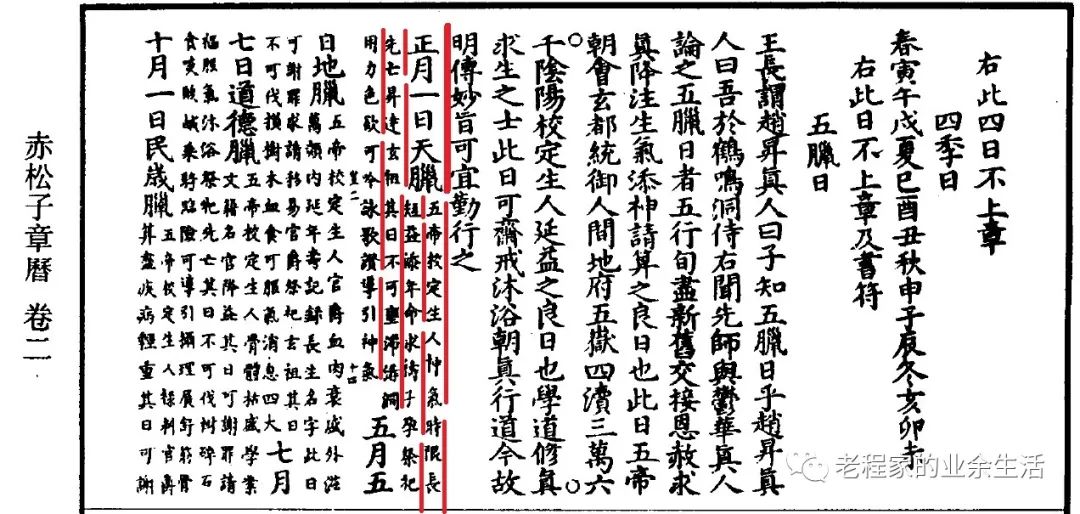 右此四日不上章
四季日
春寅午戌夏巳酉丑秋申子辰冬亥卯未
右此日不上章及書符
五臘日
王長謂趙昇眞人曰子知五臘日乎趙昇眞
人曰吾於鶴鳴洞侍右聞先師與鬱華眞人
論之五臘日者五行旬盡新舊交接恩赦求
眞降注生氣添神請算之良日也此日五帝
朝會玄都統御人間地府五嶽四瀆三萬六
千陰陽校定生人延益之良日也學道修眞
求生之士此日可齋戒沐浴朝眞行道令故
明傳妙旨可宜勤行之
正月一日天臘
五帝校定生人神氣時限長
短益添年命求待子孕祭祀
先亡昇達玄祖其日不可壅滯
用力色欲可冷詠歌讚導引神氣
五月五
日地臘
五帝校定生人官爵血肉衰盛外滋
萬類內延年壽記録長生名字此日
可謝罪求請移易官爵祭祀玄祖其日
不可伐損樹木血食可服氣消息四大
七月
七日道德臘
五帝校定生人骨體枯盛學業
文籍名官降益其日可謝罪請
福服氣沐浴祭祀先亡其日不可伐樹碎石
食 鹹乘騎臨險可導引攝理展舒筋骨
十月一日民歲臘
五帝校定生人祿料官爵
算盡疾病輕重其日可謝
赤松子章曆 卷二
老程家的业余生活